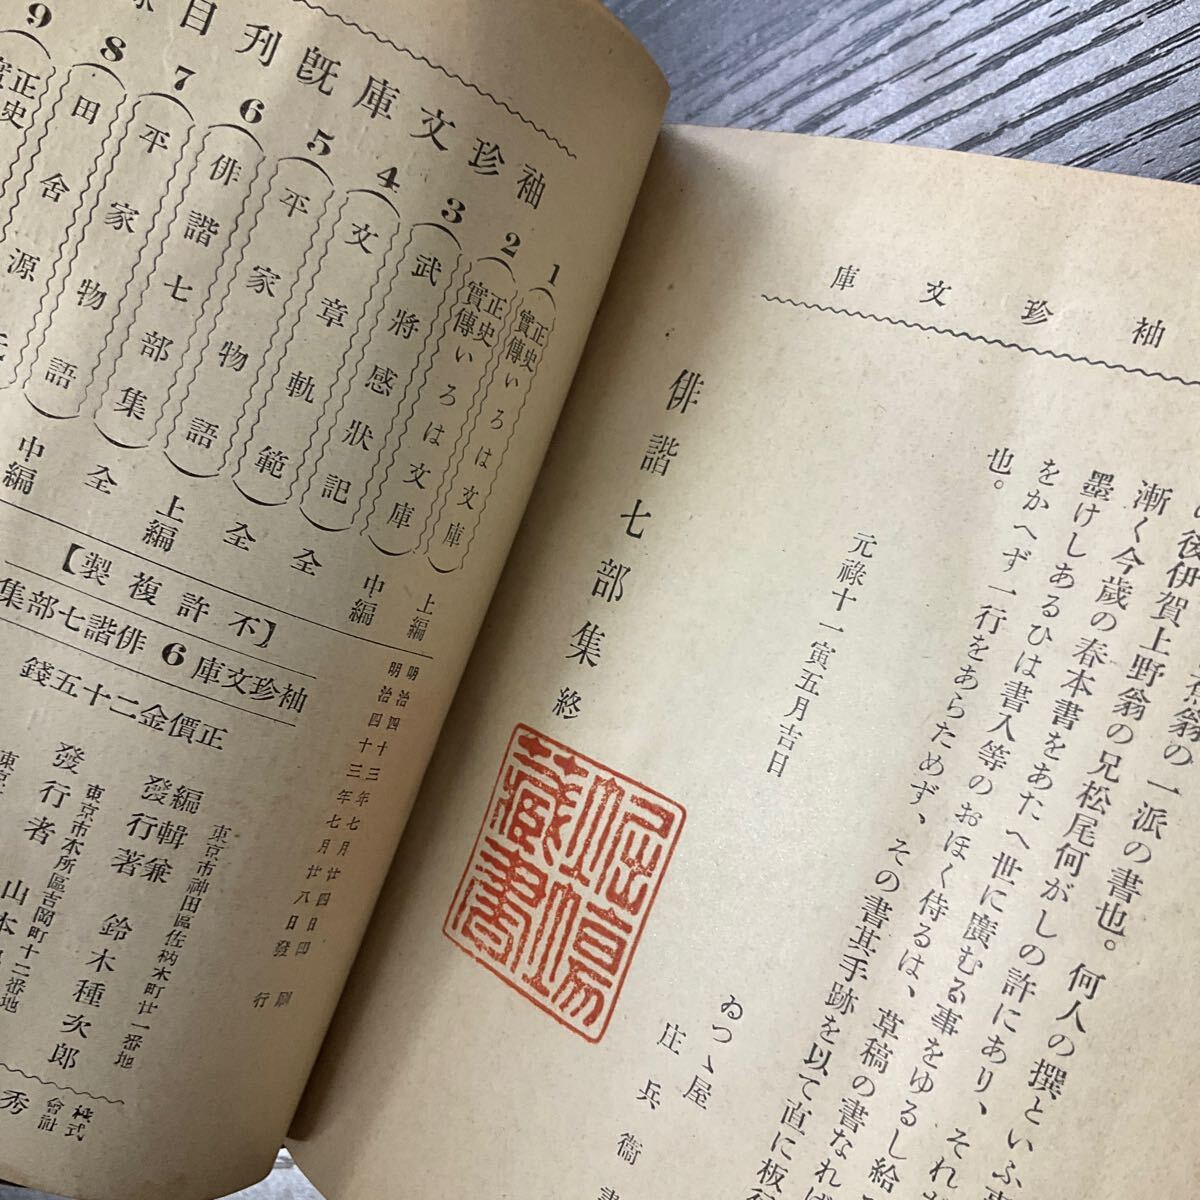 袖珍文庫
翁の一派の書也。何人の撰といふ事
後伊賀上野翁の兄松尾何がしの許にあり、それ
漸く今歳の春本書をあたへ世に廣むる事をゆるし給
墨けしあるひは書入等のおほく侍るは、草稿の書なれば
をかへず一行をあらためず、その書其手跡を以て直に板行
也。
元祿十一寅五月吉日
ゐつゝ屋
庄兵衞書
俳諧七部集終
藏書
袖珍文庫既刊目
1 正史實傳いろは文庫 上編
2 正史實傳いろは文庫 中編
3 武將感狀記 全
4 文章軌範 全
5 平家物語 上編
6 俳諧七部集 全
7 平家物語 中編
8 田舍源氏
9 正史實
【不許複製】
袖珍文庫6俳諧七部集
正價金二十五錢
明治四十三年七月廿四日印刷
明治四十三年七月廿八日發行
東京市神田區佐柄木町廿一番地
編輯兼發行著 鈴木種次郎
東京市本所區吉岡町十二番地
發行者 山本
東京
株式會社 秀